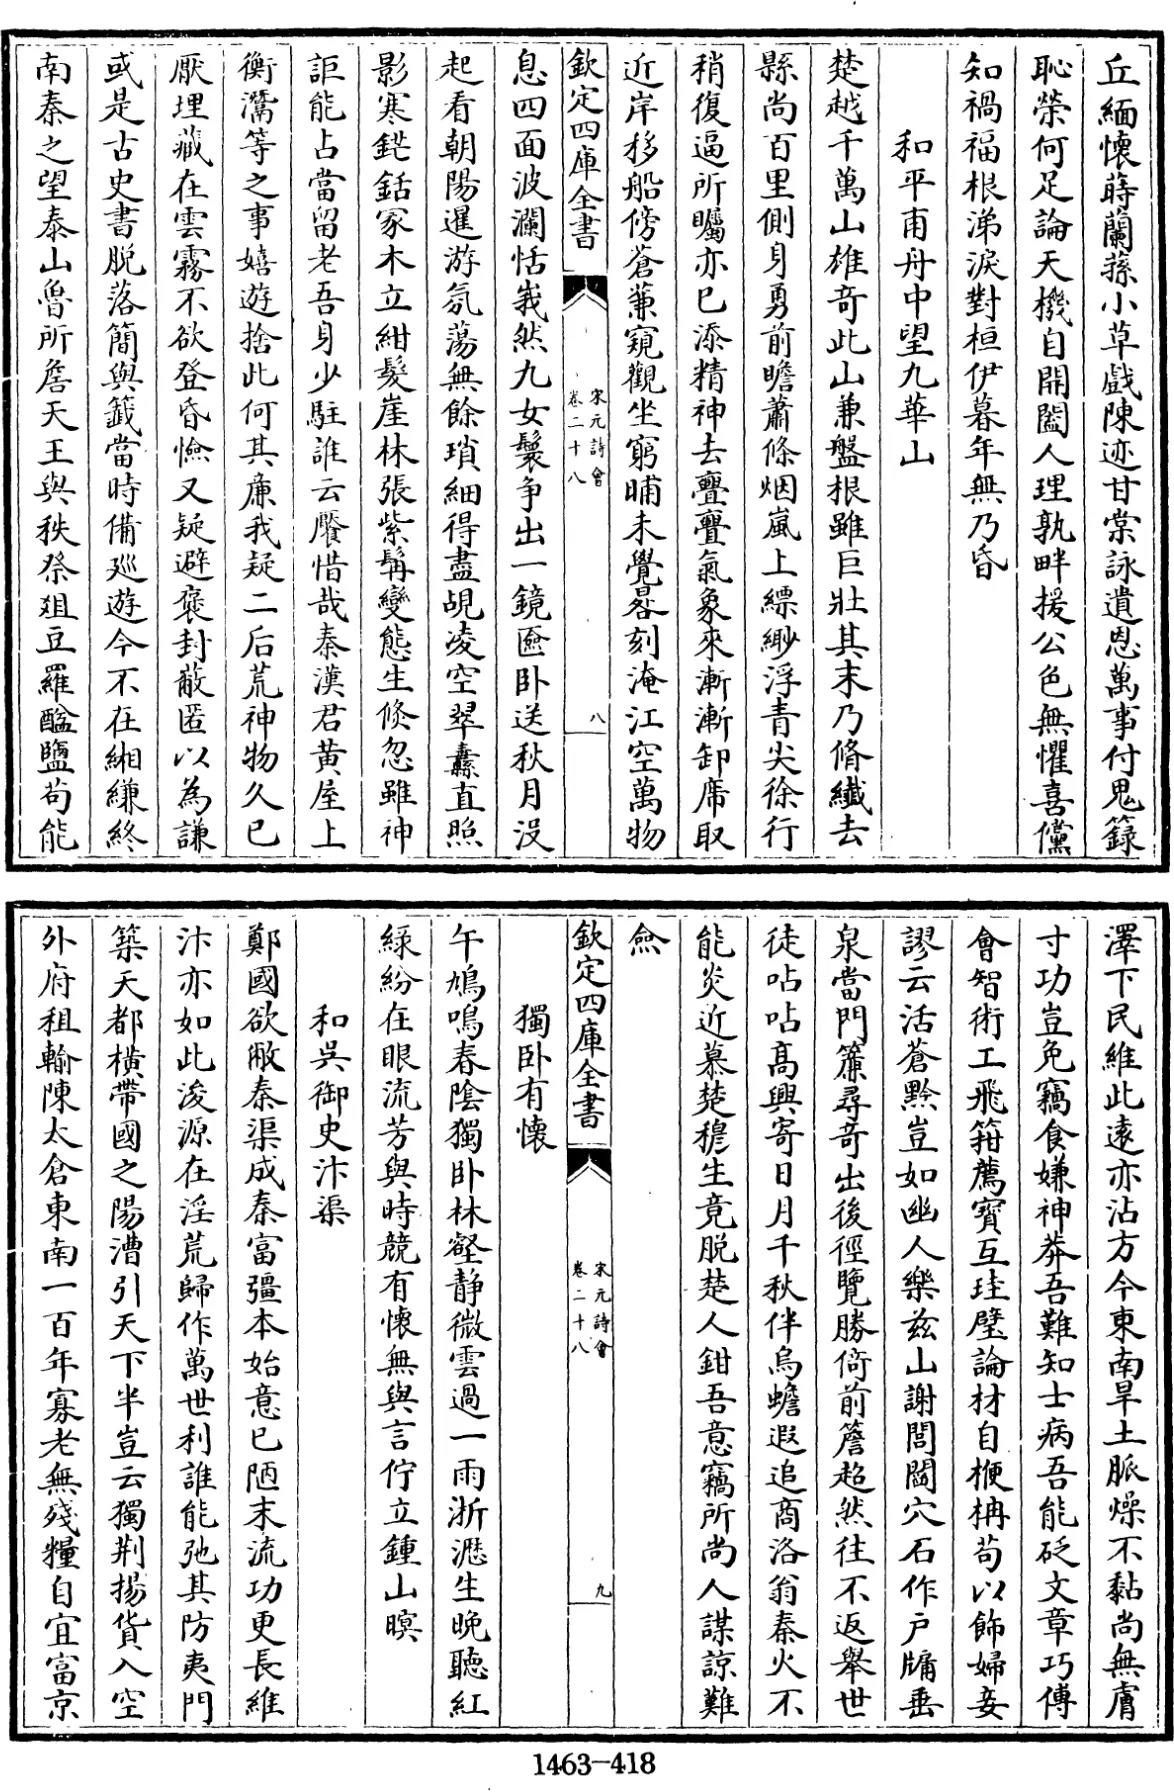 丘緬懷蒔蘭蓀小草戲陳迹甘棠詠遺恩萬事付鬼籙
恥榮何足論天機自開闔人理孰畔援公色無懼喜儻
知禍福根涕淚對桓伊暮年無乃昏
和平甫舟中望九華山
楚越千萬山雄奇此山兼盤根雖巨壯其末乃脩纖去
縣尚百里側身勇前瞻蕭條烟嵐上縹緲浮青尖徐行
稍復逼所矚亦已添精神去亹亹氣象來漸漸卸席取
近岸移船傍蒼蒹窺觀坐窮晡未覺晷刻淹江空萬物
欽定四庫全書
宋元詩會
卷二十八
八
息四面波瀾恬峩然九女鬟争出一鏡匳卧送秋月没
起看朝陽暹游氛蕩無餘瑣細得盡覘凌空翠纛直照
影寒鋩銛冢木立紺髮崖林張紫髯變態生倏忽雖神
詎能占當留老吾身少駐誰云饜惜哉秦漢君黄屋上
衡灊等之事嬉遊捨此何其亷我疑二后荒神物久已
厭埋藏在雲霧不欲登昏憸又疑避褒封蔽匿以為謙
或是古史書脱落簡與籖當時備廵遊今不在緗縑終
南秦之望泰山魯所詹天王與秩祭爼豆羅醯鹽苟能
澤下民維此遠亦沾方今東南旱土脈燥不黏尚無膚
寸功豈免竊食嫌神莽吾難知士病吾能砭文章巧傅
會智術工飛箝薦寳互珪璧論材自楩柟苟以飾婦妾
謬云活蒼黔豈如幽人樂兹山謝閭閻穴石作戸牖垂
泉當門簾尋奇出後徑覽勝倚前簷超然往不返舉世
徒呫呫高興寄日月千秋伴烏蟾遐追商洛翁秦火不
能炎近慕楚穆生竟脱楚人鉗吾意竊所尚人謀諒難
僉
欽定四庫全書
宋元詩會
卷二十八
九
獨卧有懷
午鳩鳴春陰獨卧林壑静微雲過一雨淅瀝生晚聽紅
緑紛在眼流芳與時競有懷無與言佇立鍾山暝
和吴御史汴渠
鄭國欲敝秦渠成秦富彊本始意已陋末流功更長維
汴亦如此浚源在淫荒歸作萬世利誰能弛其防夷門
築天都横帶國之陽漕引天下半豈云獨荆揚貨入空
外府租輸陳太倉東南一百年寡老無殘糧自宜富京
1463-418